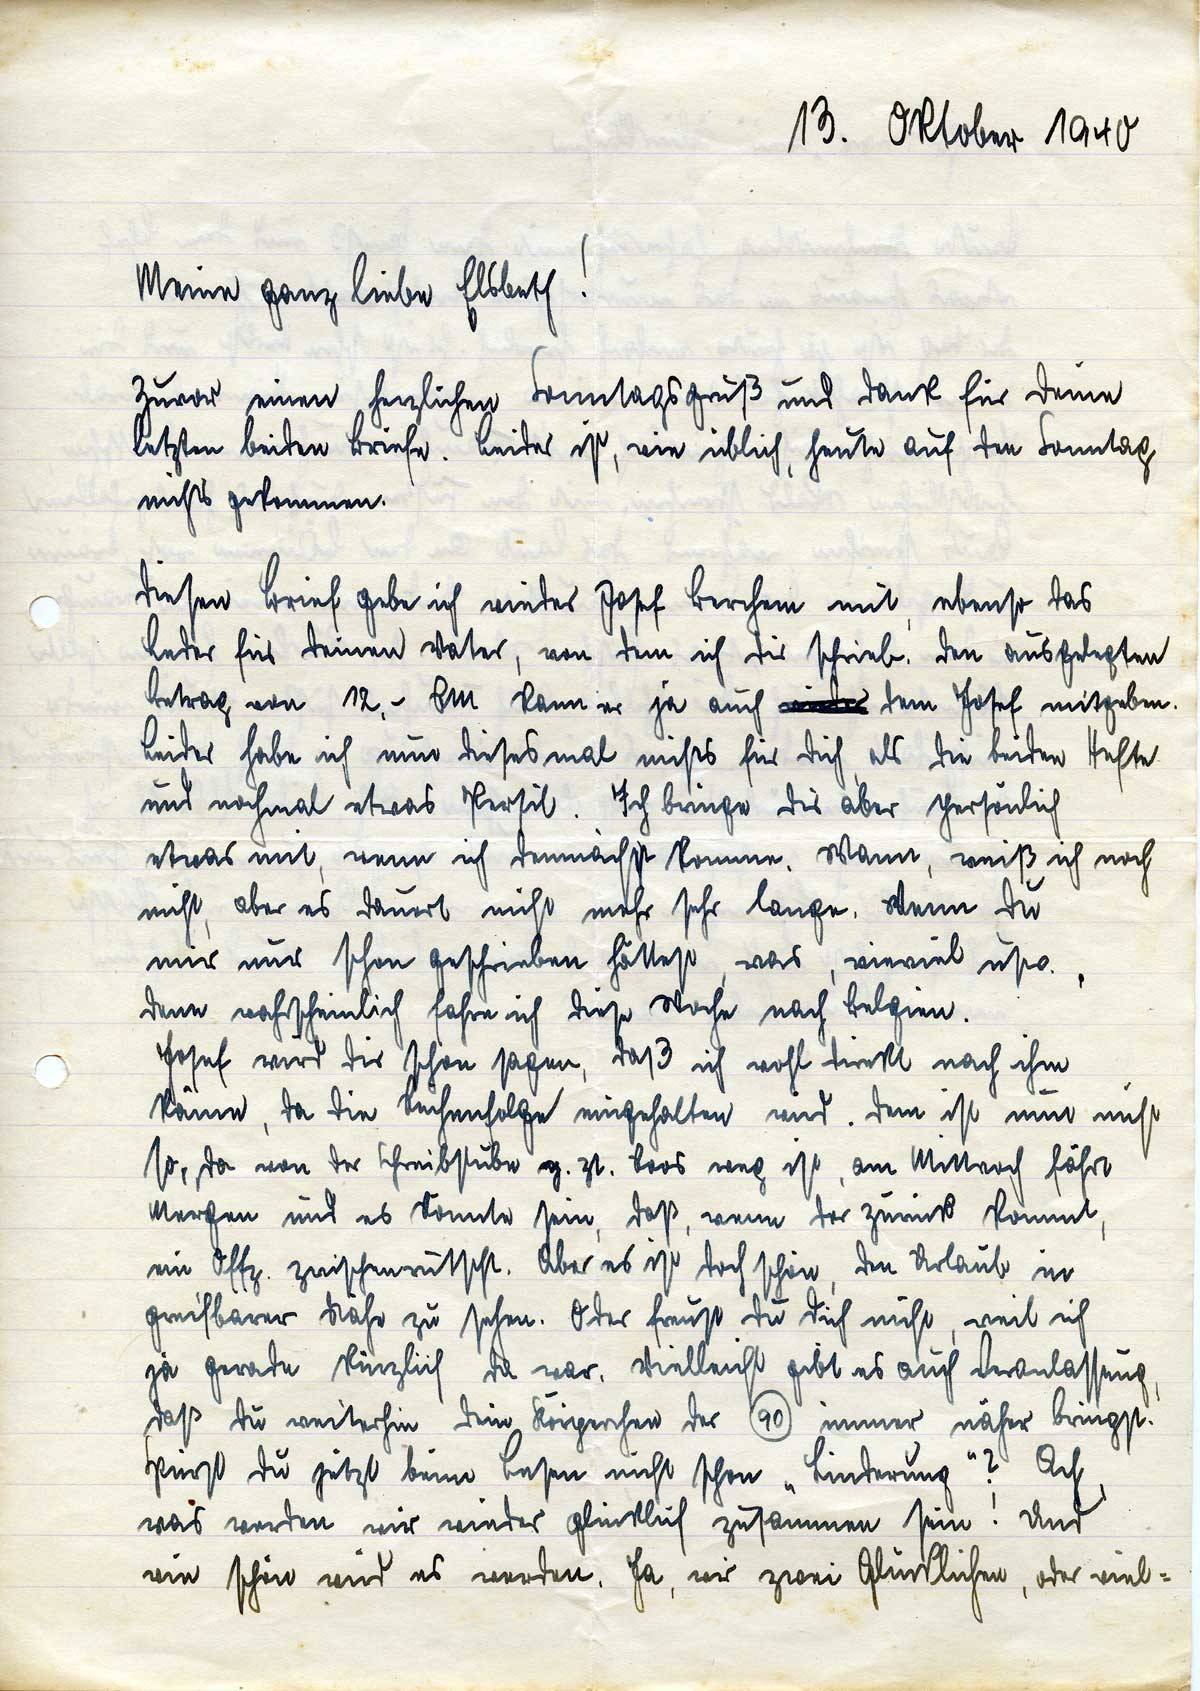 13. Oktober 1940
Meine ganz liebe Elsbeth!
Zuvor einen herzlichen Sonntagsgruß und Dank für Deine
letzten beiden Briefe. Leider ist, wie üblich, heute auf den Sonntag
nichts gekommen.
Diesen Brief gebe ich wieder Josef Berchem mit, ebenso das
Leder für Deinen Vater, von dem ich Dir schrieb. Den ausgelegten
Betrag von 12,- RM kann er ja auch dem Josef mitgeben.
Leider habe ich nun diesesmal nichts für Dich als die beiden Hefte
und nochmal etwas Persil. Ich bringe Dir aber persönlich
etwas mit, wenn ich demnächst komme. Wann, weiß ich noch
nicht, aber es dauert nicht mehr sehr lange. Wenn Du
mir nur schon geschrieben hättest, was, wieviel usw.,
denn wahrscheinlich fahre ich diese Woche nach Belgien.
Josef wird Dir schon sagen, daß ich wohl direkt nach ihm
käme, da die Reihenfolge eingehalten wird. Dem ist nun nicht
so, da von der Schreibstube z. Zt. Koos weg ist, am Mittwoch fährt
Mergen und es könnte sein, daß, wenn der zurück kommt,
ein Offz. zwischenrutscht. Aber es ist doch schön, den Urlaub in
greifbarer Nähe zu sehen. Oder freust Du Dich nicht, weil ich
ja gerade kürzlich da war. Vielleicht gibt es auch Veranlassung,
daß Du weiterhin Dein Körperchen der 90 immer näher bringst.
Spürst Du jetzt beim Lesen nicht schon „Linderung“? Ach,
was werden wir wieder glücklich zusammen sein! Und
wie schön wird es werden. Ja, wir zwei Glücklichen, oder viel=